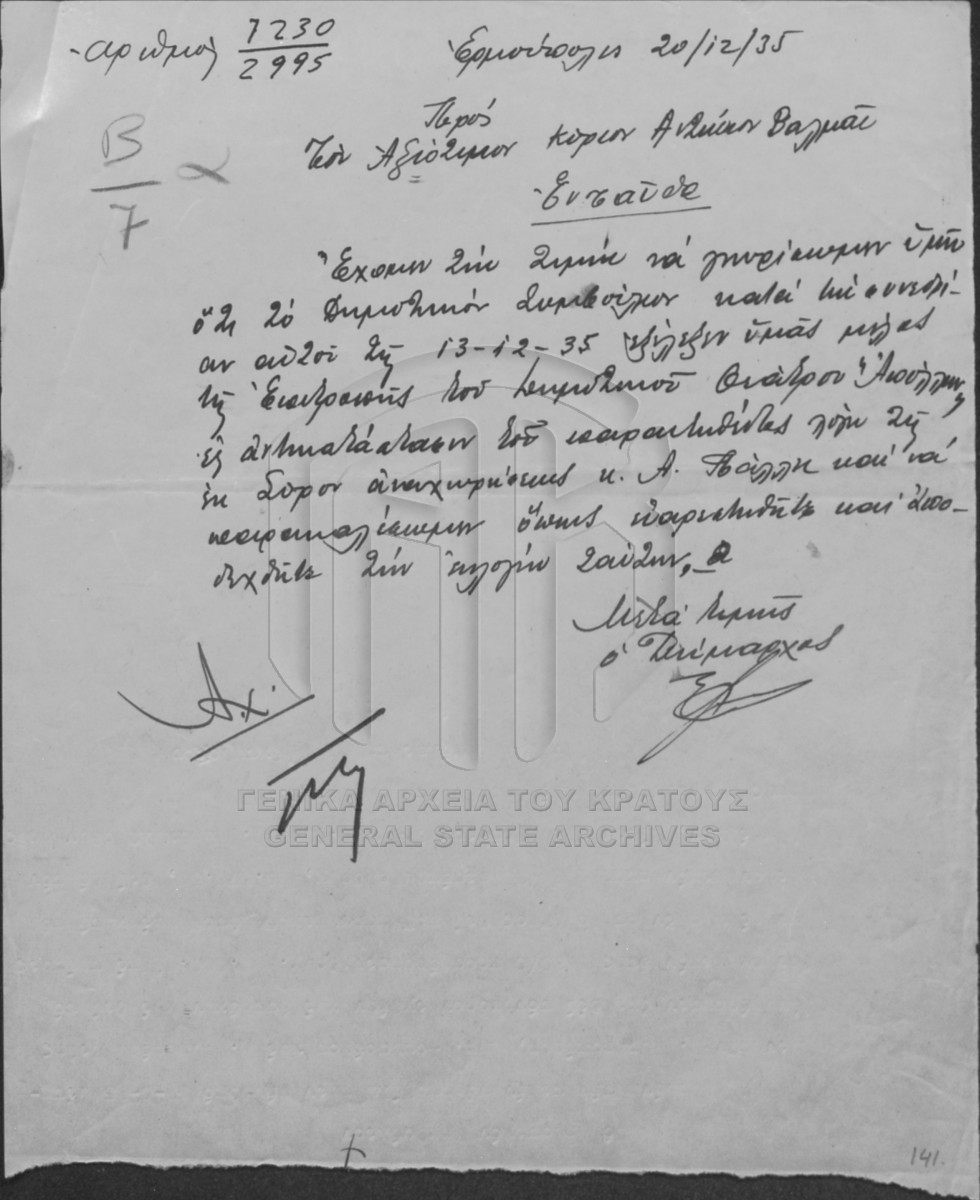 Αριθμός 7230
2995
Ἑρμούπολις 20/12/35
Πρός
Τόν Ἀξιότιμον Κύριον Ἀντώνιον Βαλμᾶν
Ἐνταῦθα
Β
7
α
Ἔχομεν τήν τιμήν νά γνωρίσωμεν ὑμῖν
ὅτι τό Δημοτικόν Συμβούλιον κατά τήν συνεδρί-
αν αὐτοῦ τῆς 13-12-35 ἐξέλεξεν ὑμᾶς μέλος
τῆς Ἐπιτροπῆς τοῦ Δημοτικοῦ Θεάτρου "Ἀπόλλων"
εἰς ἀντικατάστασιν τοῦ παραιτηθέντος λόγῳ τῆς
ἐκ Σύρου ἀναχωρήσεως κ. Α. Πάλλη καί νά
παρακαλέσωμεν ὅπως εὐαρεστηθῆτε καί ἀπο-
δεχθῆτε τήν ἐκλογήν ταύτην.
Μετά τιμῆς
ὁ Δήμαρχος
Αχ.
ΓΕΝΙΚΑ ΑΡΧΕΙΑ ΤΟΥ ΚΡΑΤΟΥΣ
GENERAL STATE ARCHIVES
141.